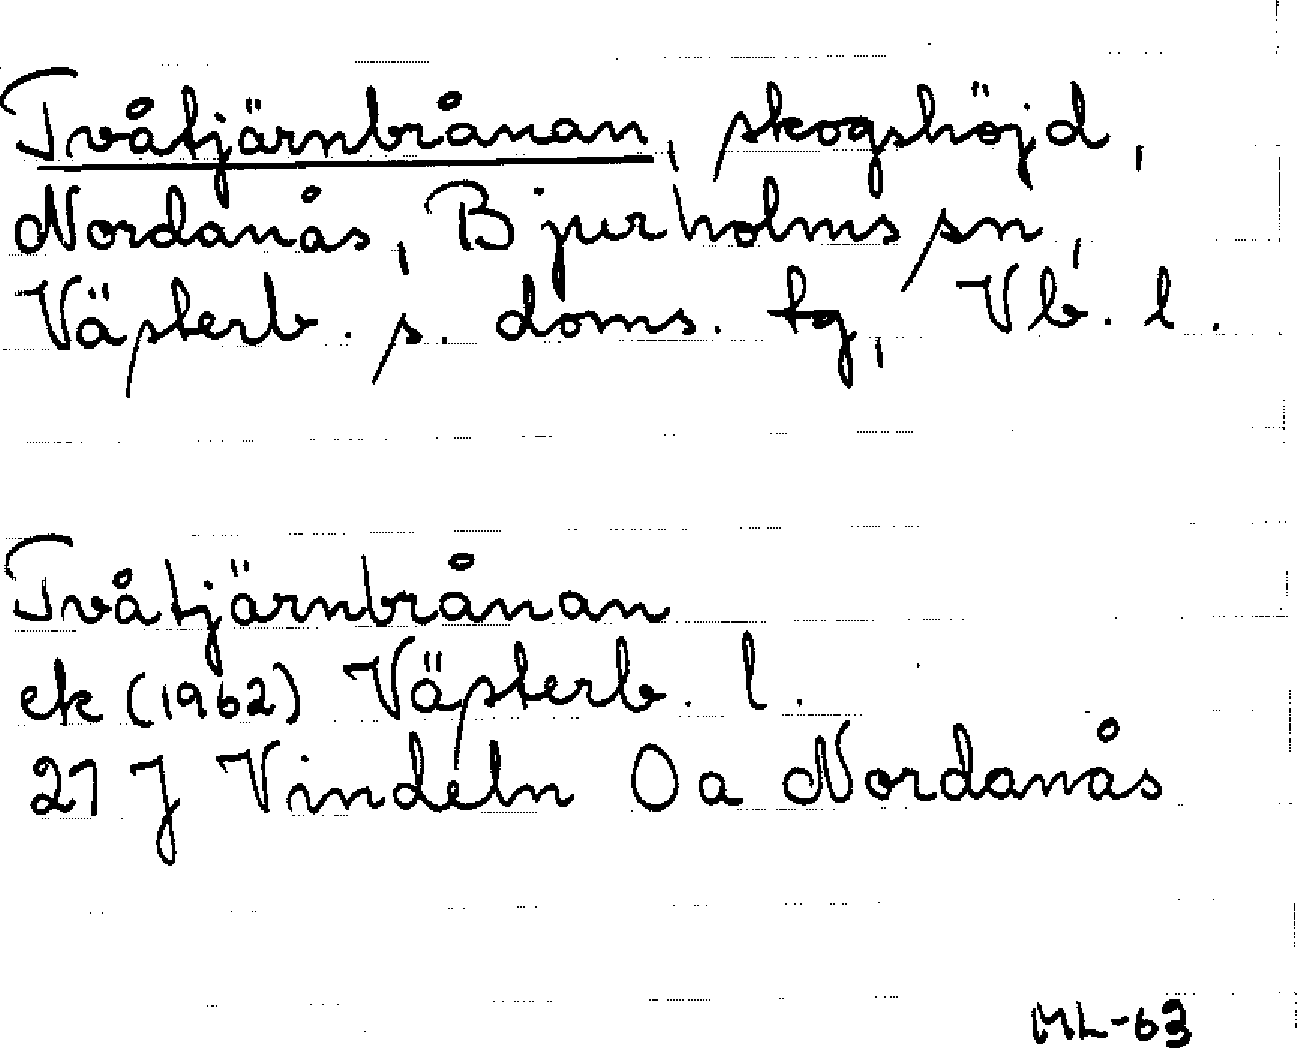 Tvåtjärnbrånan, skogshöjd,
Nordanås, Bjurholms sn,
Västerb. s. doms. tg, Vb. l.
Tvåtjärnbrånan
ek (1962) Västerb. l.
21 J Vindeln 0a Nordanås
ML-63